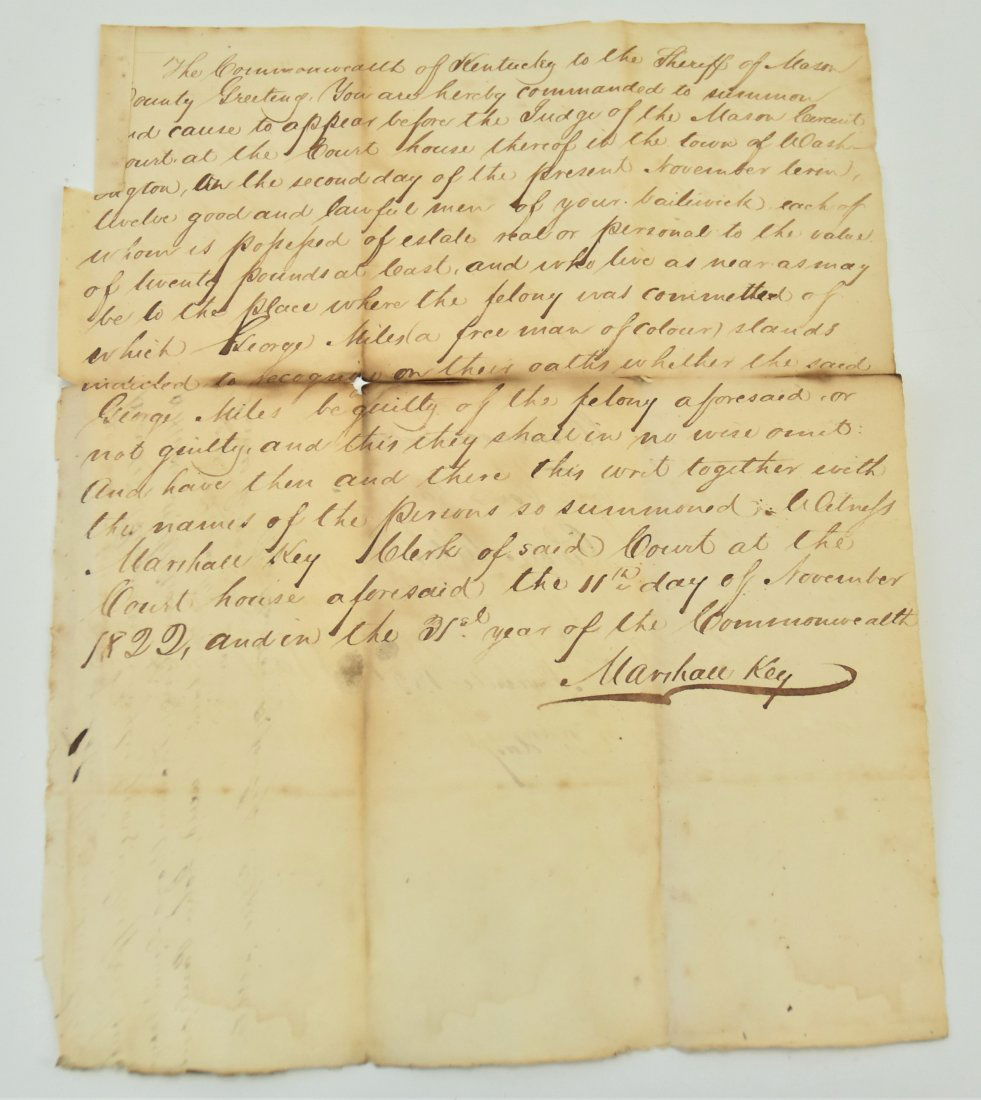 The Commonwealth of Kentucky to the Sheriff of Mason
ounty Greeting. You are hereby commanded to summon
nd cause to appear before the Judge of the Mason Circuit
ourt at the Court house thereof in the town of Wash-
ington, on the second day of the present November term,
twelve good and lawful men of your bailiwick, each of
whom is possessed of estate real or personal to the value
of twenty pounds at least, and who live as near as may
be to the place where the felony was committed of
which George Miles (a free man of colour) stands
indicted to recognize on their oaths whether the said
George Miles be guilty of the felony aforesaid, or
not guilty, and this they shall in no wise omit:
And have then and there this writ together with
the names of the persons so summoned; Witness
Marshall Key Clerk of said Court at the
Court house aforesaid the 11th day of November
1822, and in the 31st year of the Commonwealth
Marshall Key